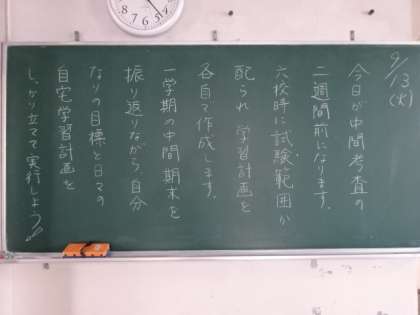 9/13
(火)
今日が中間考査の
二週間前になります。
六校時に試験範囲が
配られ 学習計画を
各自で作成します。
一学期の中間期末を
振り返りながら、自分
なりの目標と日々の
自宅学習計画を
しっかり立てて実行しよう!!